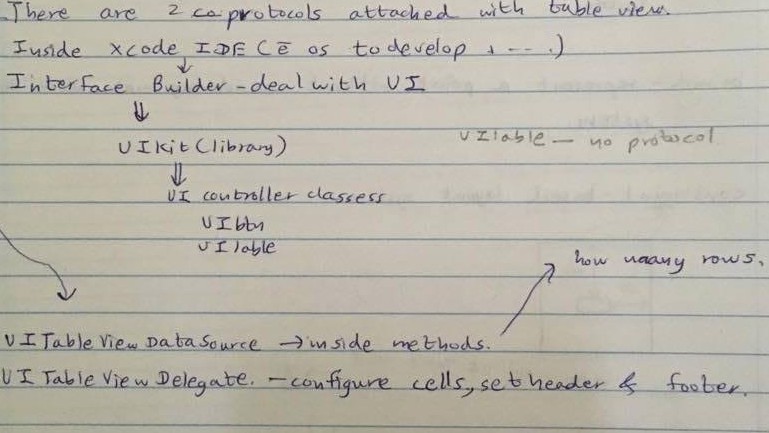 There are 2 co protocols attached with table view.
Inside xcode IDE (c̄ os to develop , -- .)
Interface Builder - deal with UI
UIKit (library)
UIlable - no protocol
UI controller classess
UIbtn
UIlable
how many rows.
UITableViewDataSource → inside methods.
UITableViewDelegate. - configure cells, set header & footer.